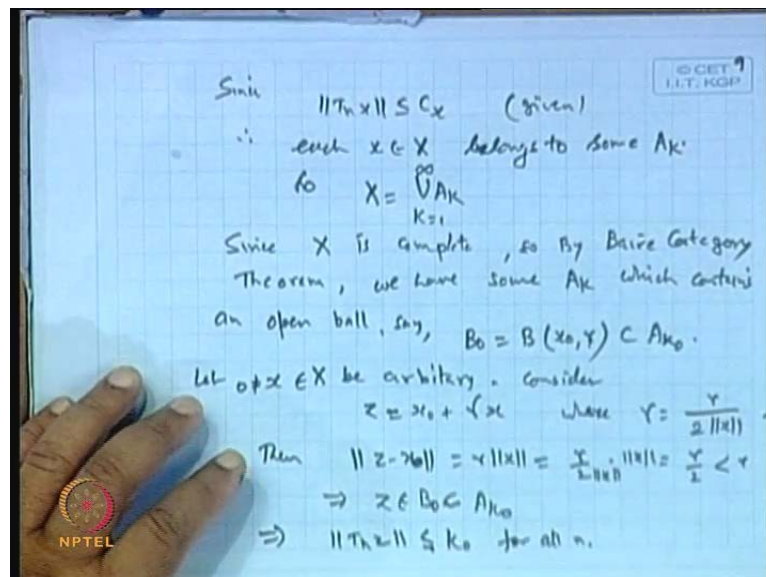 © CET 9
I.I.T. KGP
Since ||Tn x|| ≤ Cx (given)
∴ each x ∈ X belongs to some AK.
So X = ∞∪K=1 AK
Since X is complete, so By Baire Category
Theorem, we have some AK which contains
an open ball, say, B0 = B(x0, r) ⊂ AK0.
Let 0 ≠ x ∈ X be arbitary. Consider
z = x0 + γx where γ = r / 2||x||
Then ||z - x0|| = γ||x|| = r / 2||x|| · ||x|| = r/2 < r
⇒ z ∈ B0 ⊂ AK0
⇒ ||Tn z|| ≤ K0 for all n.
NPTEL